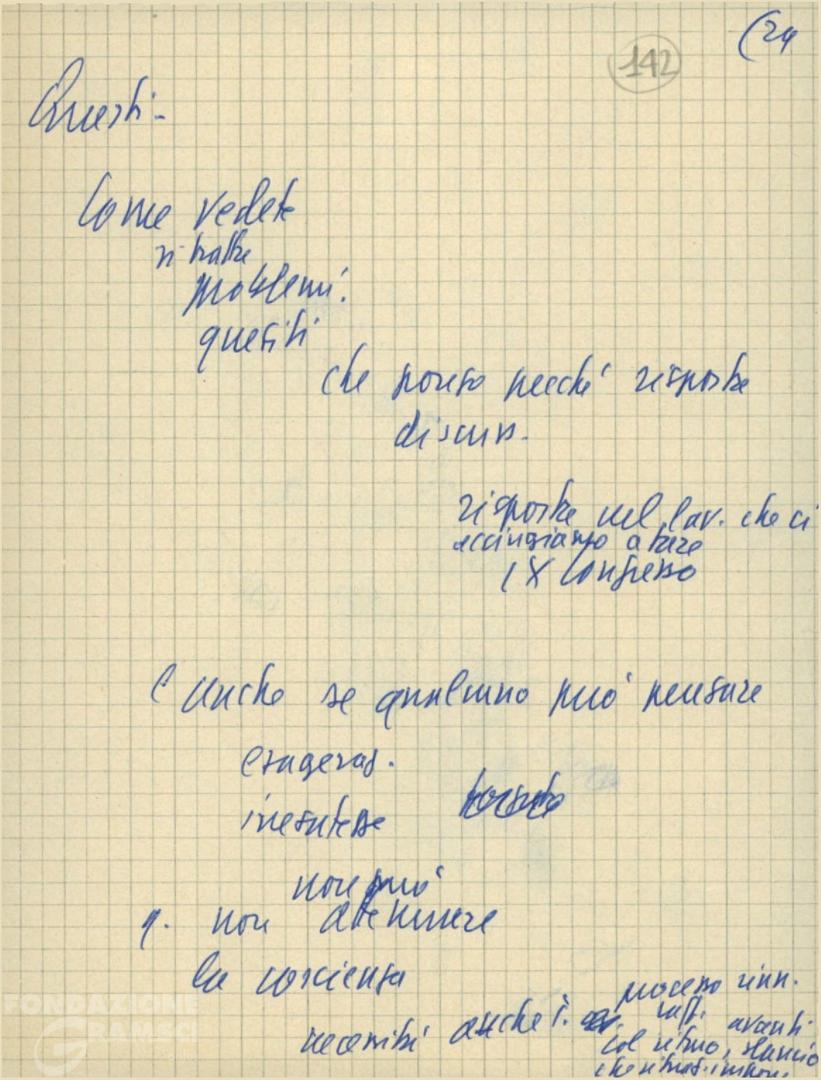 (24
142
Questi -
Come vedete
si tratta
problemi.
quesiti
che pongo perché risposte
discuss.
risposte nel lav. che ci
accingiamo a fare
IX Congresso
E anche se qualcuno può pensare
esageraz.
inesattezze
non può
q. non attenuare
la coscienza
necessità anche i.
processo rinn.
raff. avanti
col ritmo, slancio
che situaz. impone
FONDAZIONE
GRAMSCI